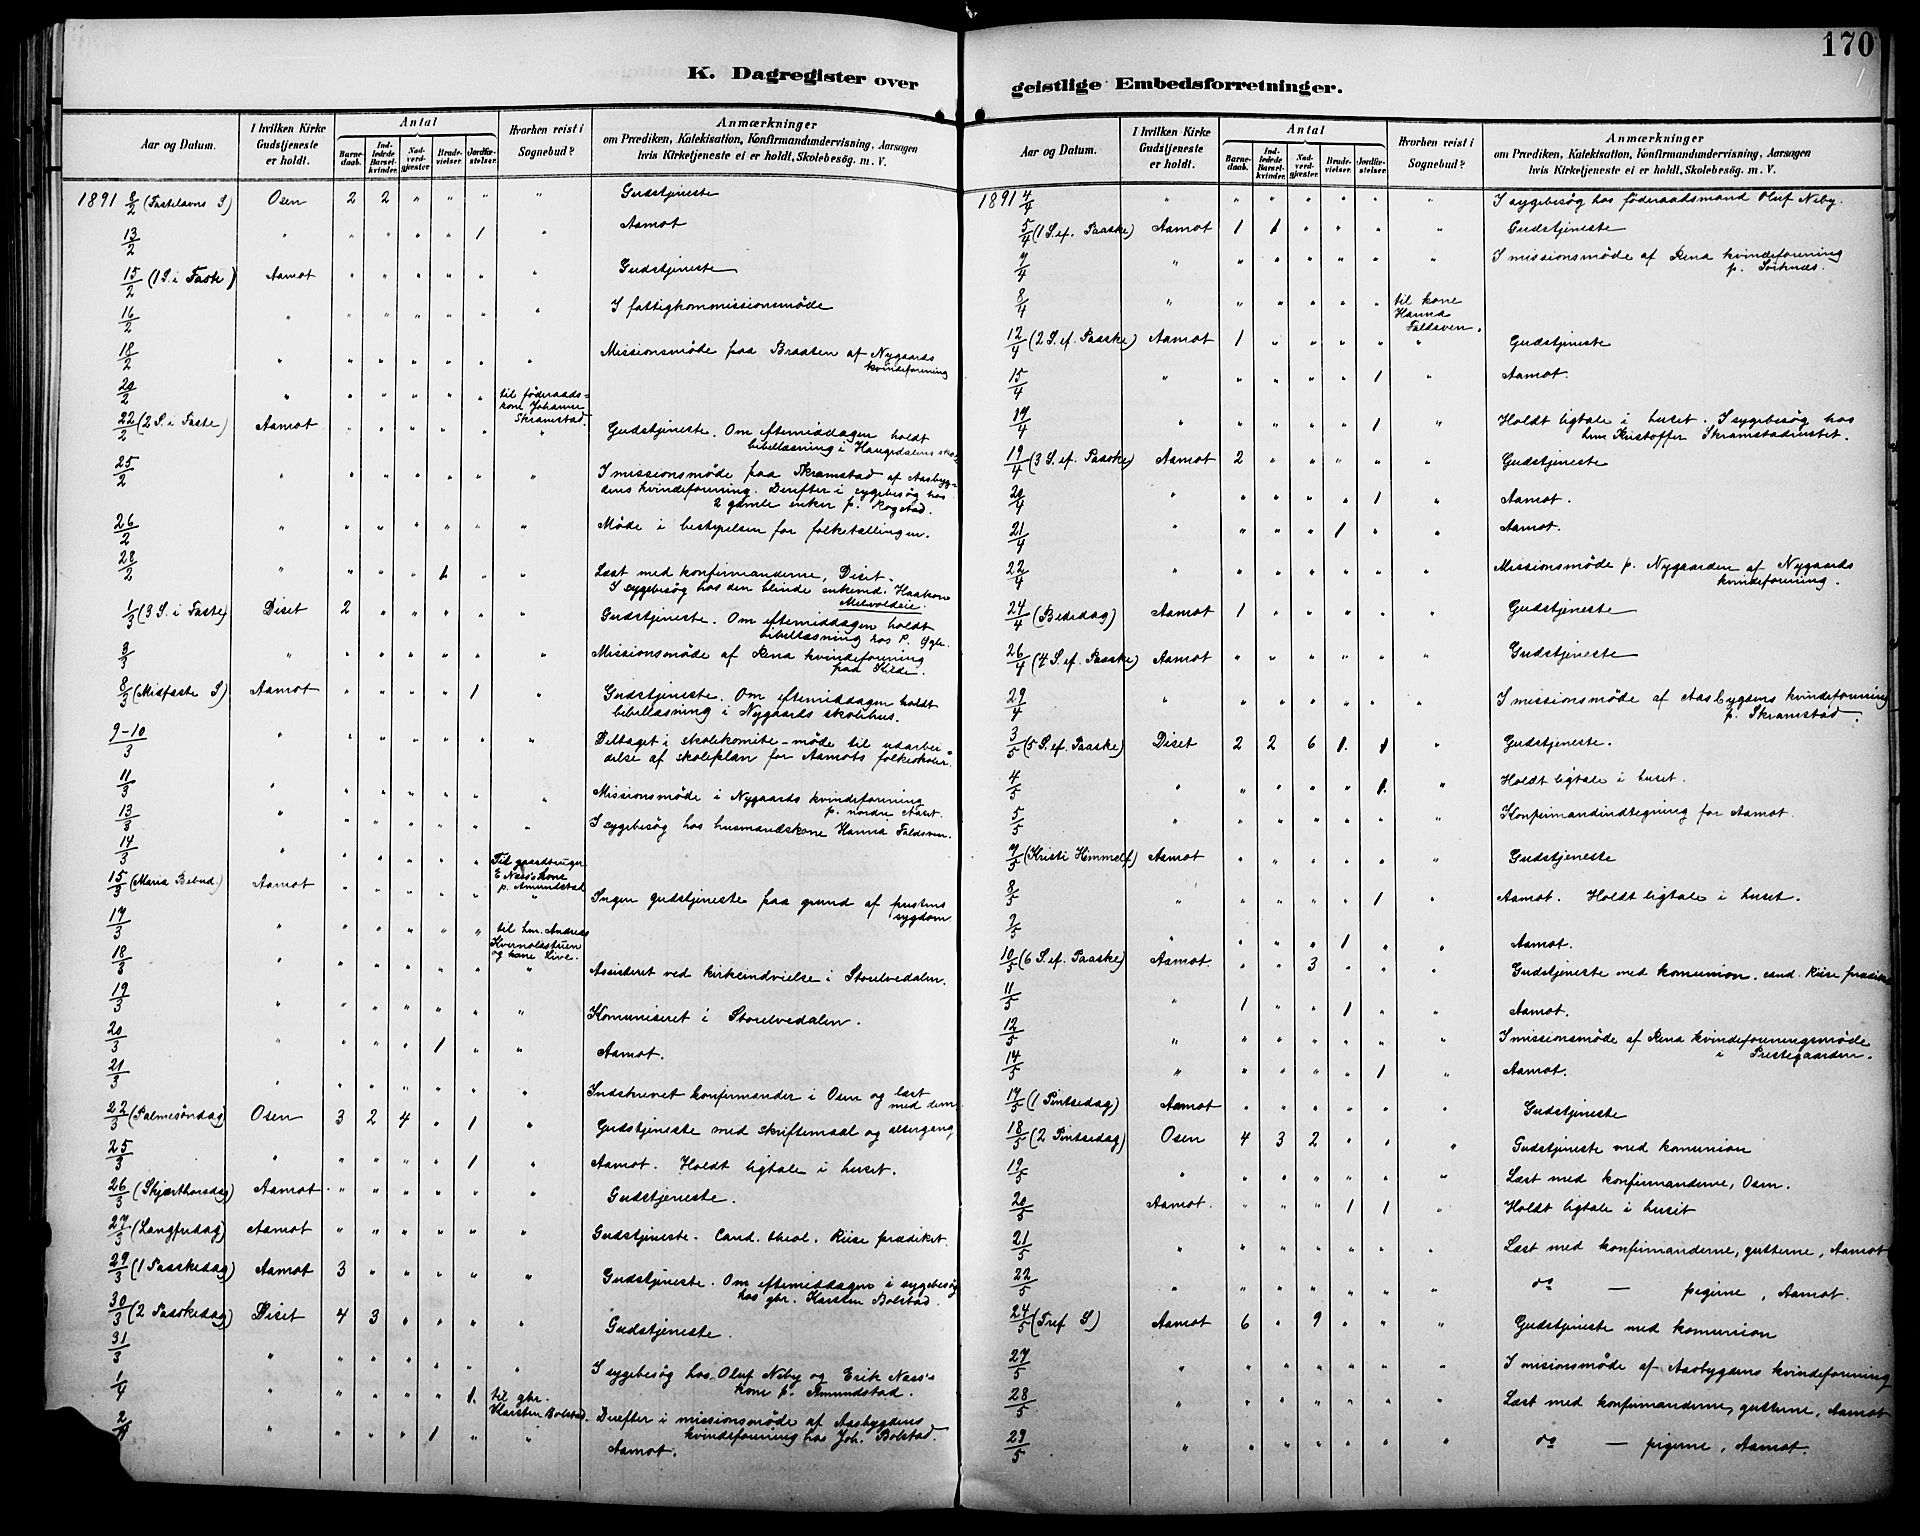 170
K. Dagregister over geistlige Embedsforretninger.
Aar og Datum. | I hvilken Kirke Gudstjeneste er holdt. | Antal | Barnedaab. | Indledede Barselkvinder. | Nadverdgjester. | Brudevielser. | Jordfæstelser. | Hvorhen reist i Sognebud? | Anmærkninger om Prædiken, Katekisation, Konfirmandundervisning, Aarsagen hvis Kirketjeneste ei er holdt, Skolebesøg. m. V.
1891 8/2 (Fastelavns S) Osen 2 2 " " " " Gudstjeneste
13/2 " " " " " 1 " Aamot
15/2 (1 S. i Faste) Aamot " " " " " " Gudstjeneste
16/2 " " " " " " " I fattigkommissionsmöde
18/2 " " " " " " " Missionsmöde paa Braaten af Nygaards
kvindeforening
20/2 " " " " " " til föderaads-
kone Johanne
Skramstad.
22/2 (2 S. i Faste) Aamot " " " " " " Gudstjeneste. Om eftermiddagen holdt
bibellæsning i Haugedalens skole
25/2 " " " " " " " I missionsmöde paa Skramstad af Aasbyg-
dens kvindeforening. Derefter i sygebesög hos
2 gamle enker p. Rogstad.
26/2 " " " " " " " Möde i bestyrelsen for folketællingen.
28/2 " " " " 1 " " Læst med konfirmanderne, Diset.
I sygebesög hos den blinde enkemd. Haakon
Melvoldeie.
1/3 (3 S. i Faste) Diset 2 " " " " " Gudstjeneste. Om eftermiddagen holdt
bibellæsning hos P. Ygle.
3/3 " " " " " " " Missionsmöde af Rena kvindeforening
paa Kilde.
8/3 (Midfaste S) Aamot " " " " 1 " Gudstjeneste. Om eftermiddagen holdt
bibellæsning i Nygaards skolehus.
9-10/3 " " " " " " " Deltaget i skolekomite-möde til udarbei-
delse af skoleplan for Aamots folkeskoler.
11/3 " " " " " " " Missionsmöde i Nygaards kvindeforening
p. nordre Aaset.
13/3 " " " " " " " I sygebesög hos husmandskone Hanna Faldsven.
14/3 " " " " " " Til gaardbruger
E Næss's kone
p. Amundstad
15/3 (Maria Bebud.) Aamot " " " " " " Ingen gudstjeneste paa grund af prestens
sygdom
17/3 " " " " " " til hm. Andreas
Kvernolsstuen
og kone Live.
18/3 " " " " " " " Assisteret ved kirkeindvielse i Storelvedalen.
19/3 " " " " " " " Komuniseret i Storelvedalen.
20/3 " " " " 1 " " Aamot.
21/3 " " " " " " " Indskrevet konfirmander i Osen og læst
med dem
22/3 (Palmesöndag) Osen 3 2 4 " 1 " Gudstjeneste med skriftemaal og altergang
25/3 " " " " " 1 " Aamot. Holdt ligtale i huset.
26/3 (Skjærthorsdag) Aamot " " " " " " Gudstjeneste.
27/3 (Langfredag) Aamot " " " " " " Gudstjeneste. Cand. theol. Riise prædiket.
29/3 (1 Paaskedag) Aamot 3 " " " " " Gudstjeneste. Om eftermiddagen i sygebesög
hos gbr. Karsten Bolstad.
30/3 (2 Paaskedag) Diset 4 3 " " " " Gudstjeneste.
31/3 " " " " " " " I sygebesög hos Oluf Neby og Erik Næss's
kone p. Amundstad.
1/4 " " " " " 1. til gbr.
Karsten Bolstad. Derefter i missionsmöde af Aasbygdens
kvindeforening hos Joh. Bolstad.
2/4 " " " " 1 " " Aamot.
Aar og Datum. | I hvilken Kirke Gudstjeneste er holdt. | Antal | Barnedaab. | Indledede Barselkvinder. | Nadverdgjester. | Brudevielser. | Jordfæstelser. | Hvorhen reist i Sognebud? | Anmærkninger om Prædiken, Katekisation, Konfirmandundervisning, Aarsagen hvis Kirketjeneste ei er holdt, Skolebesög. m. V.
1891 4/4 " " " " " " " I sygebesög hos föderaadsmand Oluf Neby.
5/4 (1 S. ef. Paaske) Aamot 1 1 " " " " Gudstjeneste
7/4 " " " " " " " I missionsmöde af Rena kvindeforening
p. Sorknæs.
8/4 " " " " " " til kone
Hanna
Faldsven.
12/4 (2 S. ef. Paaske) Aamot 1 " " " " " Gudstjeneste
15/4 " " " " " 1 " Aamot.
17/4 " " " " " 1 " Holdt ligtale i huset. I sygebesög hos
hm Kristoffer Skramstadrustet.
19/4 (3 S. ef. Paaske) Aamot 2 " " " " " Gudstjeneste
20/4 " " " " " 1 " Aamot.
21/4 " " " " 1 " " Aamot.
22/4 " " " " " " " Missionsmöde p. Nygaarden af Nygaards
kvindeforening.
24/4 (Bededag) Aamot 1 " " " " " Gudstjeneste
26/4 (4 S. ef. Paaske) Aamot " " " " " " Gudstjeneste
29/4 " " " " " " " I missionsmöde af Aasbygdens kvindeforening
p. Skramstad.
3/5 (5 S. ef. Paaske) Diset 2 2 6 1. 1 " Gudstjeneste.
4/5 " " " " " 1. " Holdt ligtale i huset.
5/5 " " " " " " " Konfirmandindtegning for Aamot.
7/5 (Kristi Himmelf) Aamot " " " " " " Gudstjeneste
8/5 " " " " " 1 " Aamot. Holdt ligtale i huset.
9/5 " " " " 1 " " Aamot.
10/5 (6 S. ef. Paaske) Aamot. " " 3 " " " Gudstjeneste med komunion. cand. Riise prædike
11/5 " 1 " " 1 " " Aamot.
12/5 " " " " " " " I missionsmöde af Rena kvindeforeningsmöde
i Prestegaarden.
14/5 " " " " " 1 " Aamot.
17/5 (1 Pintsedag) Aamot " " " " " " Gudstjeneste
18/5 (2 Pintsedag) Osen 4 3 2 " " " Gudstjeneste med komunion
19/5 " " " " " " " Læst med konfirmanderne, Osen.
20/5 Aamot. " " " 1 1 " Holdt ligtale i huset
21/5 " " " " " " " Læst med konfirmanderne, gutterne, Aamot
22/5 " " " " " " " do — pigerne, Aamot.
24/5 (Tref S) Aamot 6 " 9 " " " Gudstjeneste med komunion
27/5 " " " " " " " I misionsmöde af Aasbygdens kvindeforening
28/5 " " " " " " " Læst med konfirmanderne, gutterne, Aamot
29/5 " " " " " " " do — pigerne, Aamot.